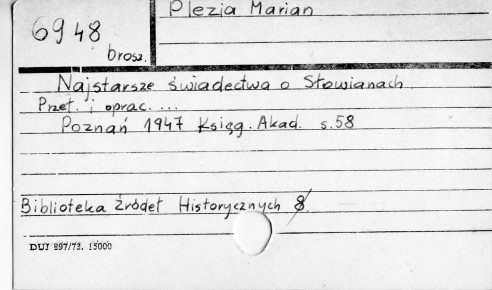 Plezia Marian
6948
brosz.
Najstarsze świadectwa o Słowianach.
Przeł. i oprac. ...
Poznań 1947 Księg. Akad. s.58
Biblioteka Źródeł Historycznych 8
DUJ 897/72. 15000